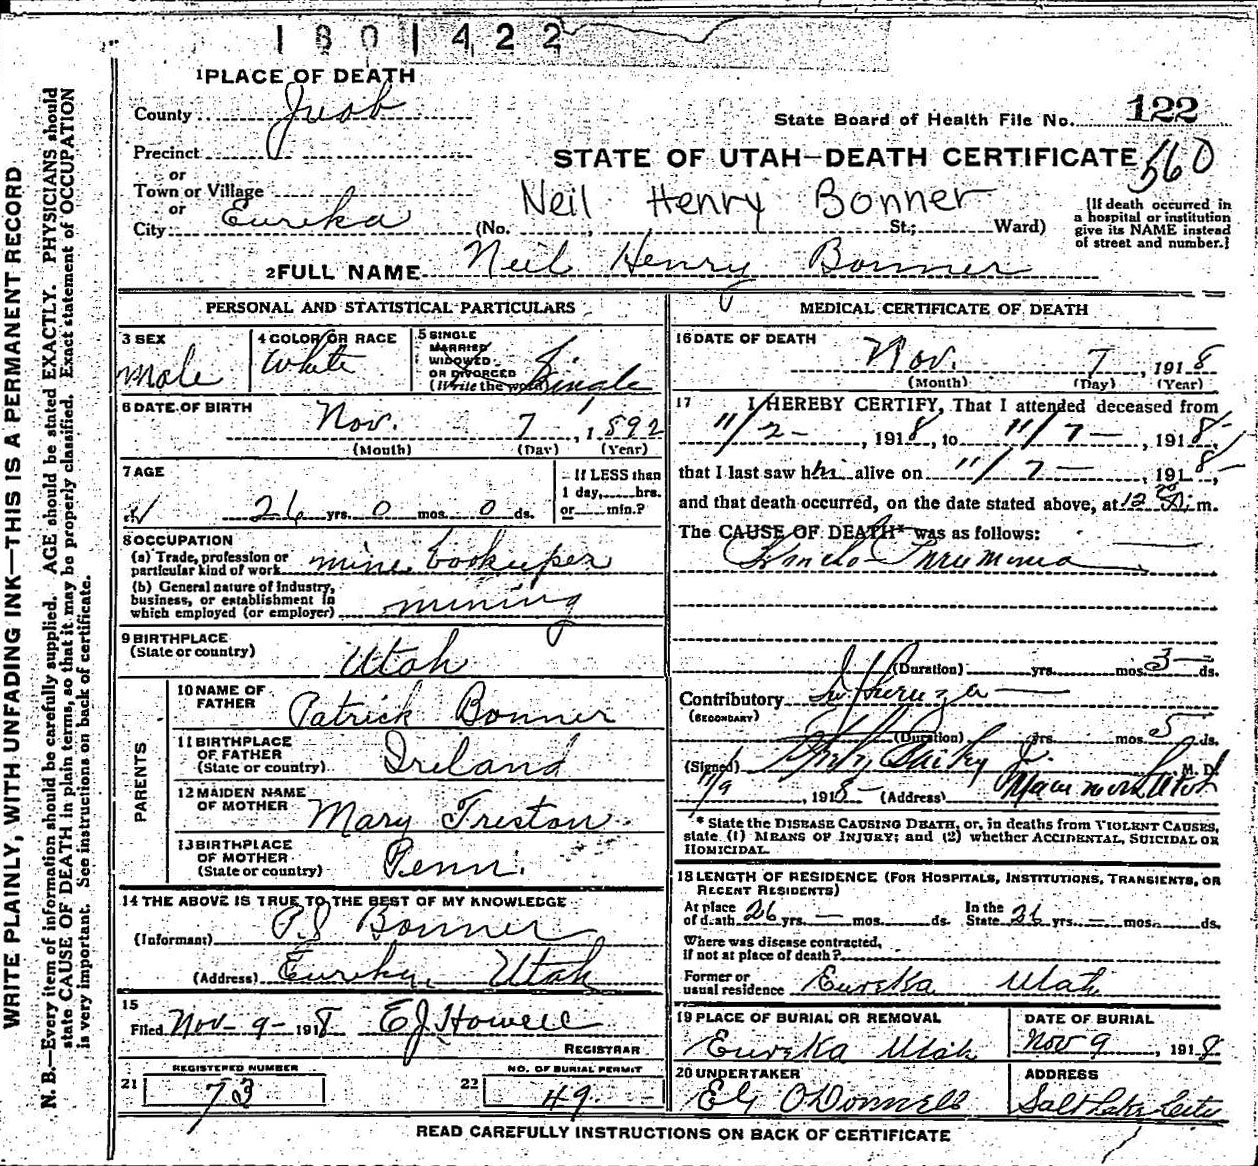 1801422
1 PLACE OF DEATH
County Juab
State Board of Health File No. 122
Precinct
STATE OF UTAH—DEATH CERTIFICATE 560
or
Town or Village
or
City Eureka
Neil Henry Bonner
(No. St.; Ward)
[If death occurred in
a hospital or institution
give its NAME instead
of street and number.]
2 FULL NAME Neil Henry Bonner
PERSONAL AND STATISTICAL PARTICULARS
3 SEX
male
4 COLOR OR RACE
White
5 SINGLE
MARRIED
WIDOWED
OR DIVORCED
(Write the word) Single
6 DATE OF BIRTH
Nov. 7, 1892
(Month) (Day) (Year)
7 AGE
26 yrs. 0 mos. 0 ds.
If LESS than
1 day, hrs.
or min.?
8 OCCUPATION
(a) Trade, profession or
particular kind of work mine bookkeeper
(b) General nature of industry,
business, or establishment in
which employed (or employer) mining
9 BIRTHPLACE
(State or country) Utah
PARENTS
10 NAME OF
FATHER Patrick Bonner
11 BIRTHPLACE
OF FATHER
(State or country) Ireland
12 MAIDEN NAME
OF MOTHER Mary Treston
13 BIRTHPLACE
OF MOTHER
(State or country) Penn.
14 THE ABOVE IS TRUE TO THE BEST OF MY KNOWLEDGE
(Informant) P.J. Bonner
(Address) Eureka, Utah
15
Filed Nov-9-1918 E J Howell
REGISTRAR
21 REGISTERED NUMBER
73
22 NO. OF BURIAL PERMIT
49.
MEDICAL CERTIFICATE OF DEATH
16 DATE OF DEATH
Nov. 7, 1918
(Month) (Day) (Year)
17 I HEREBY CERTIFY, That I attended deceased from
11/2-, 1918, to 11/7-, 1918,
that I last saw him alive on 11/7-, 1918,
and that death occurred, on the date stated above, at 12 m.
The CAUSE OF DEATH* was as follows:
Broncho-Pneumonia
(Duration) yrs. mos. 3 ds.
Contributory Influenza
(SECONDARY)
(Duration) yrs. mos. 5 ds.
(Signed) Bailey Jr. M. D.
11/9, 1918 (Address) Mammoth Utah
* State the DISEASE CAUSING DEATH, or, in deaths from VIOLENT CAUSES,
state (1) MEANS OF INJURY; and (2) whether ACCIDENTAL, SUICIDAL OR
HOMICIDAL.
18 LENGTH OF RESIDENCE (FOR HOSPITALS, INSTITUTIONS, TRANSIENTS, OR
RECENT RESIDENTS)
At place
of death 26 yrs. — mos. ds. In the
State 26 yrs. — mos. ds.
Where was disease contracted,
if not at place of death?
Former or
usual residence Eureka Utah
19 PLACE OF BURIAL OR REMOVAL
Eureka Utah
DATE OF BURIAL
Nov 9, 1918
20 UNDERTAKER
EG O'Donnell
ADDRESS
Salt Lake City
READ CAREFULLY INSTRUCTIONS ON BACK OF CERTIFICATE
WRITE PLAINLY, WITH UNFADING INK—THIS IS A PERMANENT RECORD
N. B.—Every item of information should be carefully supplied. AGE should be stated EXACTLY. PHYSICIANS should
state CAUSE OF DEATH in plain terms, so that it may be properly classified. Exact statement of OCCUPATION
is very important. See instructions on back of certificate.